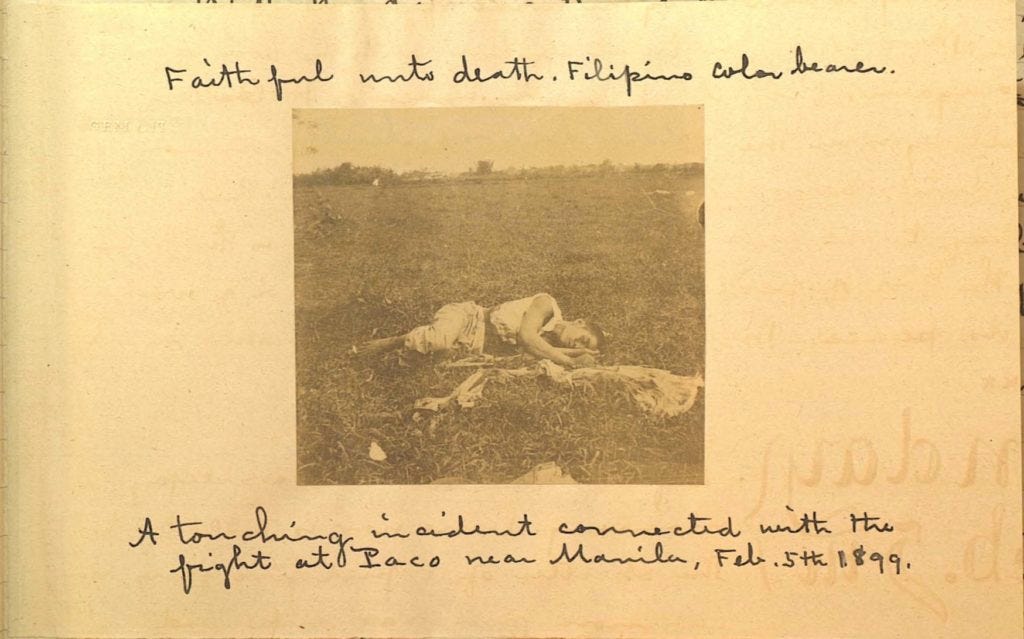 Faithful unto death. Filipino color bearer.
A touching incident connected with the
fight at Paco near Manila, Feb. 5th 1899.